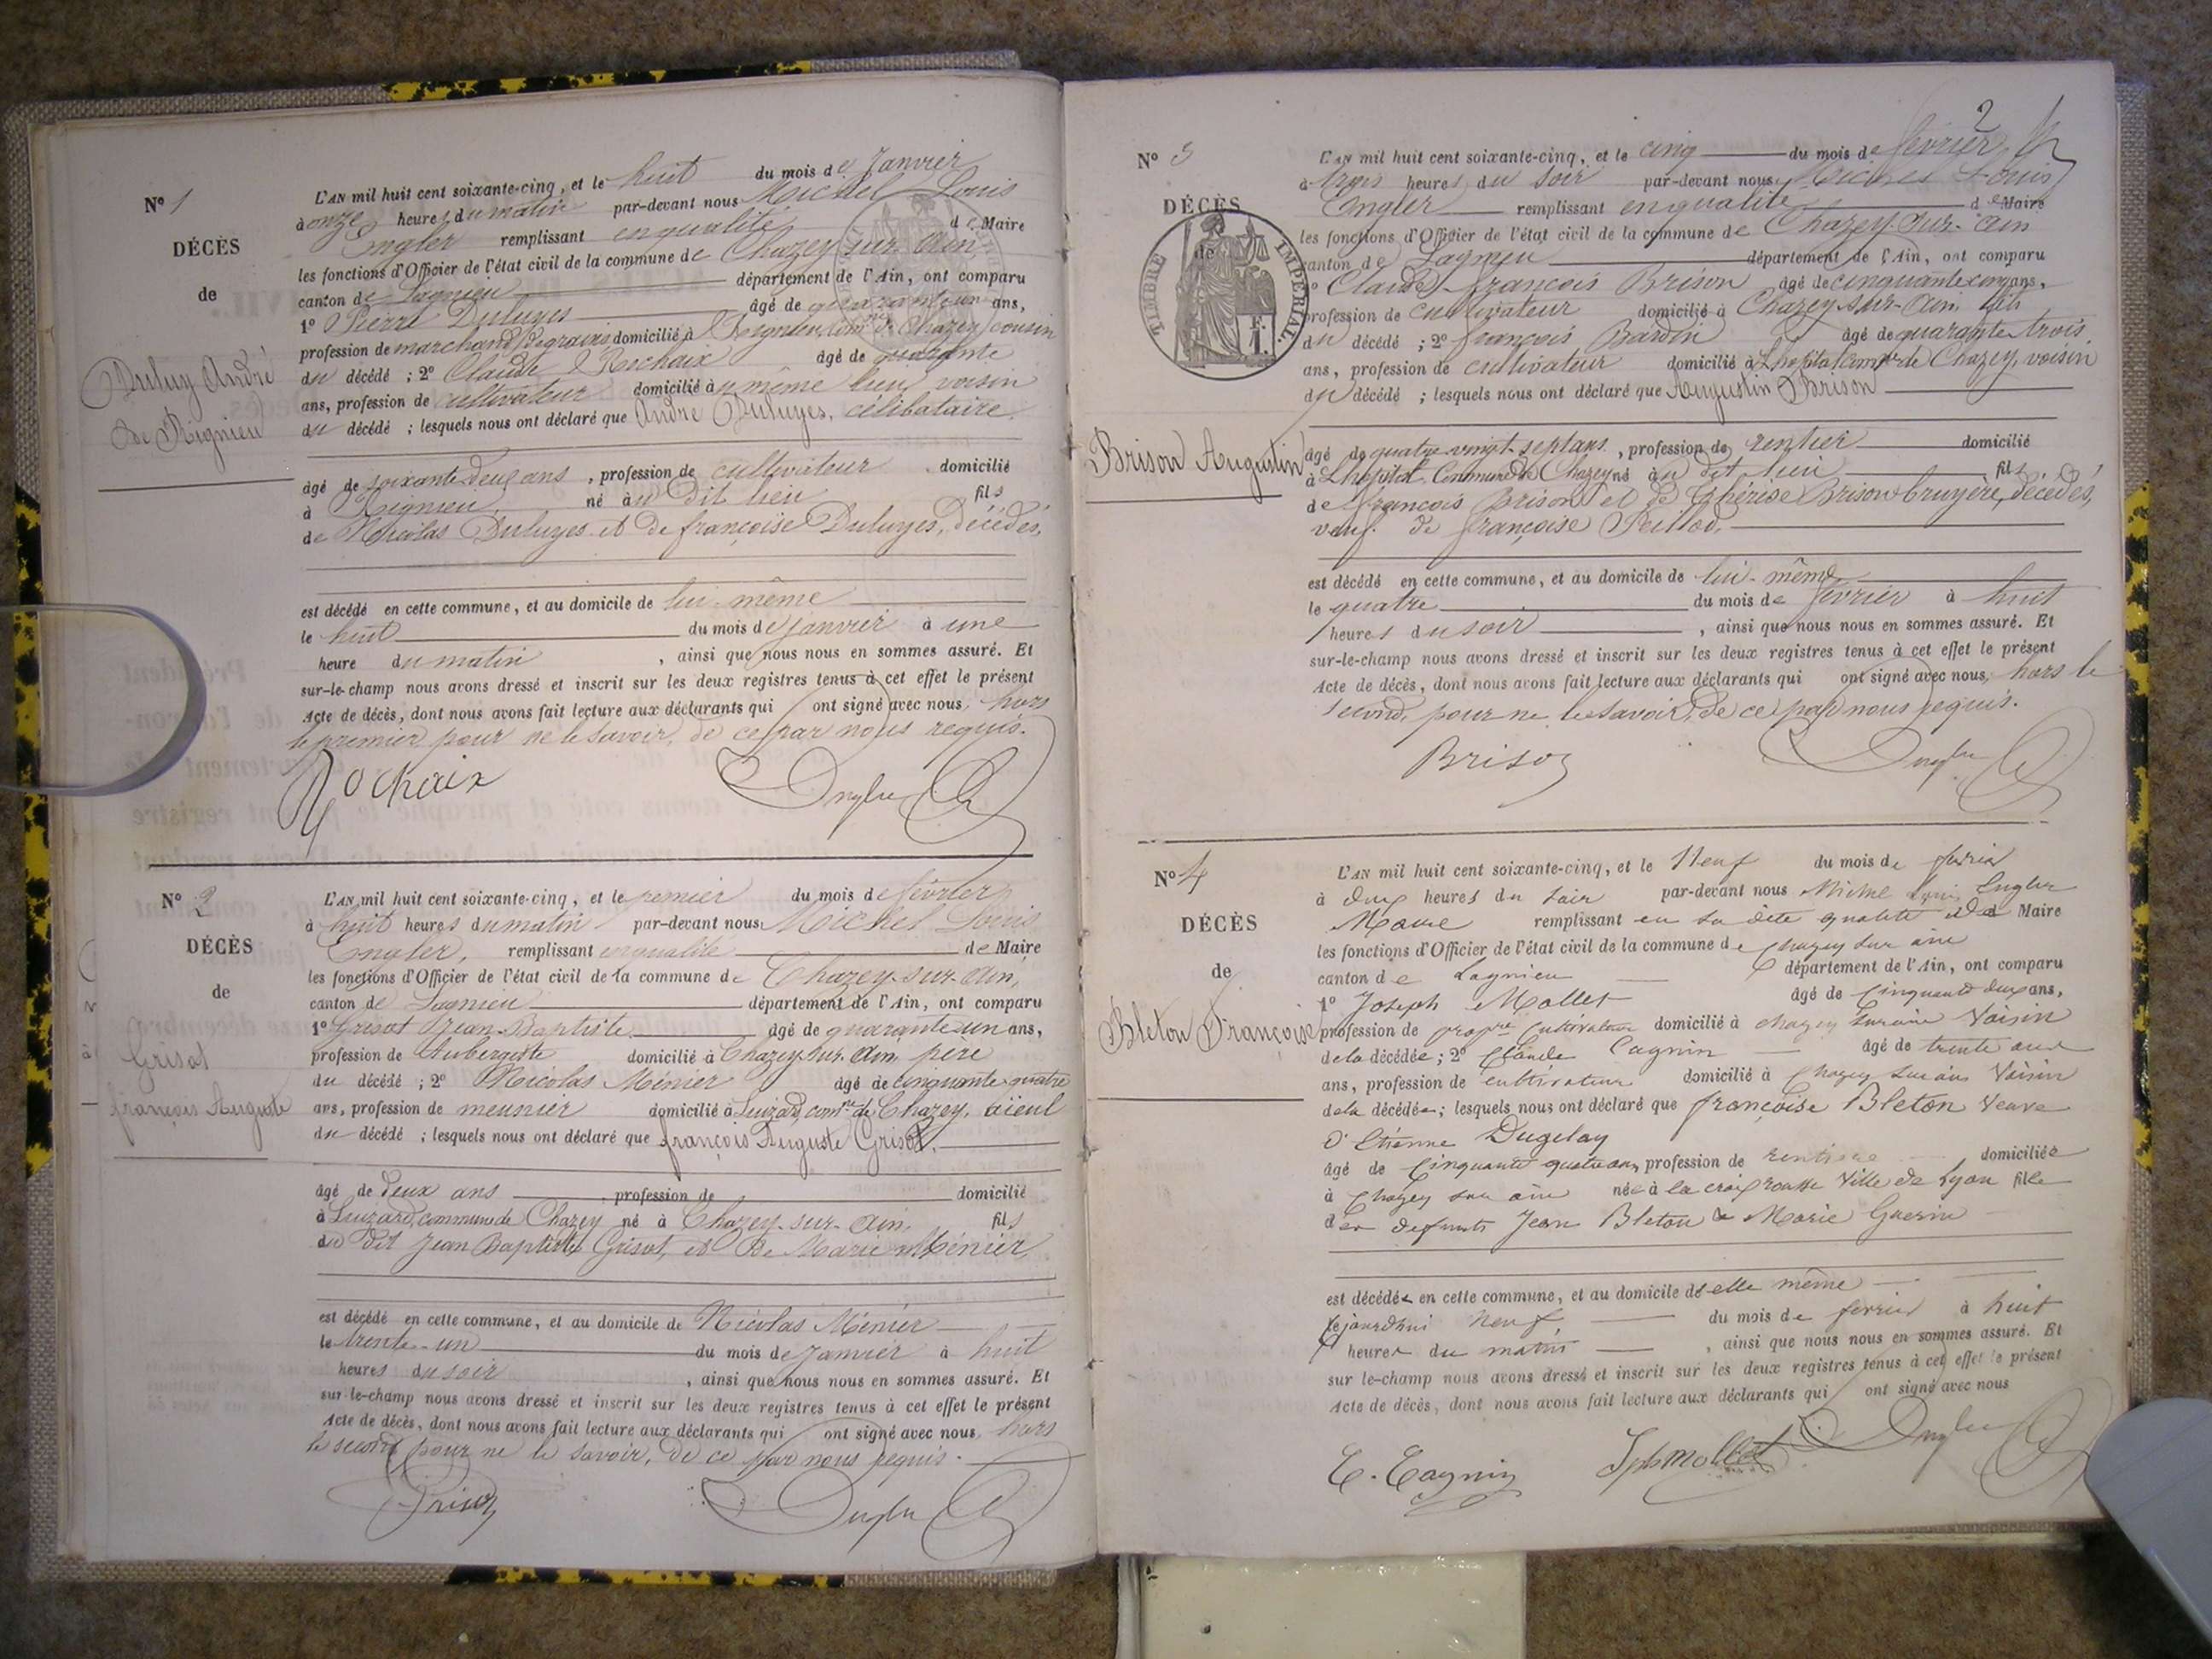 Nº 1
DÉCÈS
de
Duluy André
de Rignieu
L'AN mil huit cent soixante-cinq, et le huit du mois de Janvier
à onze heures du matin par-devant nous Michel Louis
Engler remplissant en qualité de Maire
les fonctions d'Officier de l'état civil de la commune de Chazey-sur-Ain
canton de Lagnieu département de l'Ain, ont comparu
1º Pierre Duluyes âgé de quarante un ans,
profession de marchand de grains domicilié à Rignieu, comne de Chazey, cousin
du décédé ; 2º Claude Rochaix âgé de quarante
ans, profession de cultivateur domicilié au même lieu voisin
du décédé ; lesquels nous ont déclaré que André Duluyes, célibataire
âgé de soixante deux ans , profession de cultivateur domicilié
à Rignieu, né au dit lieu fils
de Nicolas Duluyes et de françoise Duluyes, décédés,
est décédé en cette commune, et au domicile de lui-même
le huit du mois de janvier à une
heure du matin , ainsi que nous nous en sommes assuré. Et
sur-le-champ nous avons dressé et inscrit sur les deux registres tenus à cet effet le présent
Acte de décès, dont nous avons fait lecture aux déclarants qui ont signé avec nous, hors
le premier pour ne le savoir, de ce par nous requis.
Rochaix Engler
Nº 2
DÉCÈS
de
Grisot
françois Auguste
L'AN mil huit cent soixante-cinq, et le premier du mois de février
à huit heures du matin par-devant nous Michel Louis
Engler, remplissant en qualité de Maire
les fonctions d'Officier de l'état civil de la commune de Chazey-sur-Ain,
canton de Lagnieu département de l'Ain, ont comparu
1º Grisot Jean-Baptiste âgé de quarante un ans,
profession de Aubergiste domicilié à Chazey-sur-Ain, père
du décédé ; 2º Nicolas Ménier âgé de cinquante quatre
ans, profession de meunier domicilié à Luizard, comne de Chazey, aïeul
du décédé ; lesquels nous ont déclaré que françois Auguste Grisot.
âgé de deux ans , profession de domicilié
à Luizard, commune de Chazey né à Chazey-sur-Ain, fils
du dit Jean Baptiste Grisot, et de Marie Ménier,
est décédé en cette commune, et au domicile de Nicolas Ménier
le trente-un du mois de janvier à huit
heures du soir , ainsi que nous nous en sommes assuré. Et
sur-le-champ nous avons dressé et inscrit sur les deux registres tenus à cet effet le présent
Acte de décès, dont nous avons fait lecture aux déclarants qui ont signé avec nous, hors
le second pour ne le savoir, de ce par nous requis.
Grisot Engler
2
Nº 3
DÉCÈS
de
TIMBRE IMPÉRIAL
1 F.
Brison Augustin
L'AN mil huit cent soixante-cinq, et le cinq du mois de février
à trois heures du soir par-devant nous Michel Louis
Engler remplissant en qualité de Maire
les fonctions d'Officier de l'état civil de la commune de Chazey-sur-Ain
canton de Lagnieu département de l'Ain, ont comparu
1º Claude-françois Brison âgé de cinquante cinq ans,
profession de cultivateur domicilié à Chazey-sur-Ain, fils
du décédé ; 2º françois Bardin âgé de quarante trois
ans, profession de cultivateur domicilié à L'hopital comne de Chazey, voisin
du décédé ; lesquels nous ont déclaré que Augustin Brison
âgé de quatre-vingt-sept ans , profession de rentier domicilié
à L'hopital, Commune de Chazey né au dit lieu fils
de françois Brison et de Thérise Brison-bruyère, décédés,
veuf de françoise Peillod,
est décédé en cette commune, et au domicile de lui-même
le quatre du mois de février à huit
heures du soir , ainsi que nous nous en sommes assuré. Et
sur-le-champ nous avons dressé et inscrit sur les deux registres tenus à cet effet le présent
Acte de décès, dont nous avons fait lecture aux déclarants qui ont signé avec nous, hors le
second, pour ne le savoir, de ce par nous requis.
Brison Engler
Nº 4
DÉCÈS
de
Bleton Françoise
L'AN mil huit cent soixante-cinq, et le Neuf du mois de fevrier
à deux heures du soir par-devant nous Michel Louis Engler
Maire remplissant en sa dite qualité de Maire
les fonctions d'Officier de l'état civil de la commune de Chazey sur ain
canton de Lagnieu département de l'Ain, ont comparu
1º Joseph Mollet âgé de Cinquante deux ans,
profession de propre Cultivateur domicilié à chazey sur ain Voisin
de la décédée ; 2º Claude Cagnin âgé de trente
ans, profession de cultivateur domicilié à Chazey sur ain Voisin
de la décédée ; lesquels nous ont déclaré que françoise Bleton Veuve
d'Etienne Dugelay
âgé de Cinquante quatre ans, profession de rentiere domiciliée
à Chazey sur ain née à la croix rousse Ville de Lyon fille
des defunts Jean Bleton & Marie Guerin
est décédée en cette commune, et au domicile d'elle même
le jourdhui Neuf du mois de fevrier à huit
heures du matin , ainsi que nous nous en sommes assuré. Et
sur le-champ nous avons dressé et inscrit sur les deux registres tenus à cet effet le présent
Acte de décès, dont nous avons fait lecture aux déclarants qui ont signé avec nous
C. Cagnin Jph Mollet Engler